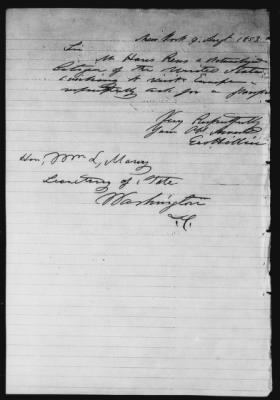 New York 9 Augt 1853.
Sir
Mr Hares a Naturalized
Citizen of the United States
wishing to visit Europe
respectfully ask for a passport
Very Respectfully
Your Obt Servant
Hon. Wm L. Marcy
Secretary of State
Washington